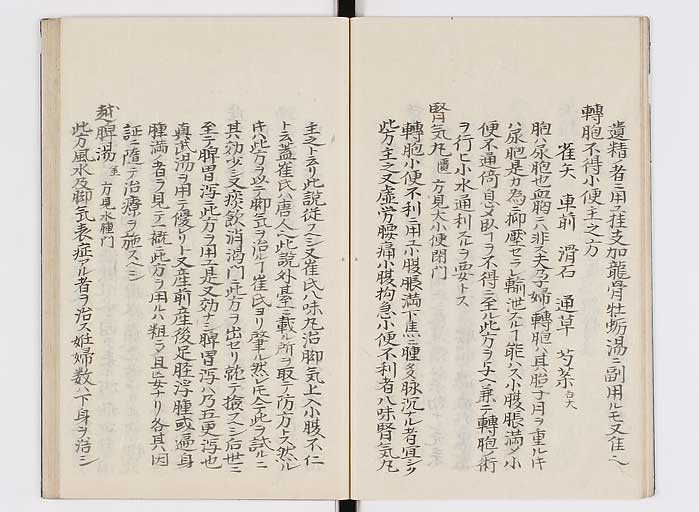 遺精者ニ用ヒ桂支加龍骨牡蛎湯ニ副用ルモ又佳ヘ
轉胞不得小便主之方
雀矢　車前　滑石　通草　芍薬各大
胞ハ尿胞也血胞ニハ非ス夫孕婦ノ轉胞ハ其胎子月ヲ重ルニ
ハ尿胞是カ為ニ抑壓セラレ輸泄スルヿ能ハス小腹脹満〆小
便不通倚息〆臥ヿヲ不得ニ至ル此方ヲ与ヘ兼ニ轉胞ノ術
ヲ行ヒ小水通利スルヲ要トス
腎気丸 匱 方見大小便閉門
轉胞小便不利ニ用ユ小腹脹満下焦ニ腫多脉沉ナル者宜シク
此方主之又虚労腰痛小腹拘急小便不利者八味腎気丸
主之ト云リ此説從フヘシ又崔氏八味丸治脚気上入小腹不仁
ト云蓋崔氏ハ唐人ヘ此説外臺ニ載ル所ヲ取テ防方トス然ル
ニ此方ヲ以テ脚気ヲ治ルヿ崔氏ヨリ肇ル然レ𪜈今此ヲ試ルニ
其効少シ又痰飲消渇門ニ此方ヲ出セリ就テ撿スヘシ后世ニ
至テ脾胃瀉ニ此方ヲ用ユ是又効ナシ脾胃瀉ハ乃五更瀉也
真武湯ヲ用テ優リトス又産前産後足脛浮腫或遍身
腫満ノ者ヲ見テ一概ニ此方ヲ用ルハ粗ラ且妄ナリ各其因
証ニ隨テ治療ヲ施スヘシ
越脾湯 至 方見水腫門
此方風水及脚気表症アル者ヲ治ス妊婦数ハ下身ヲ治シ